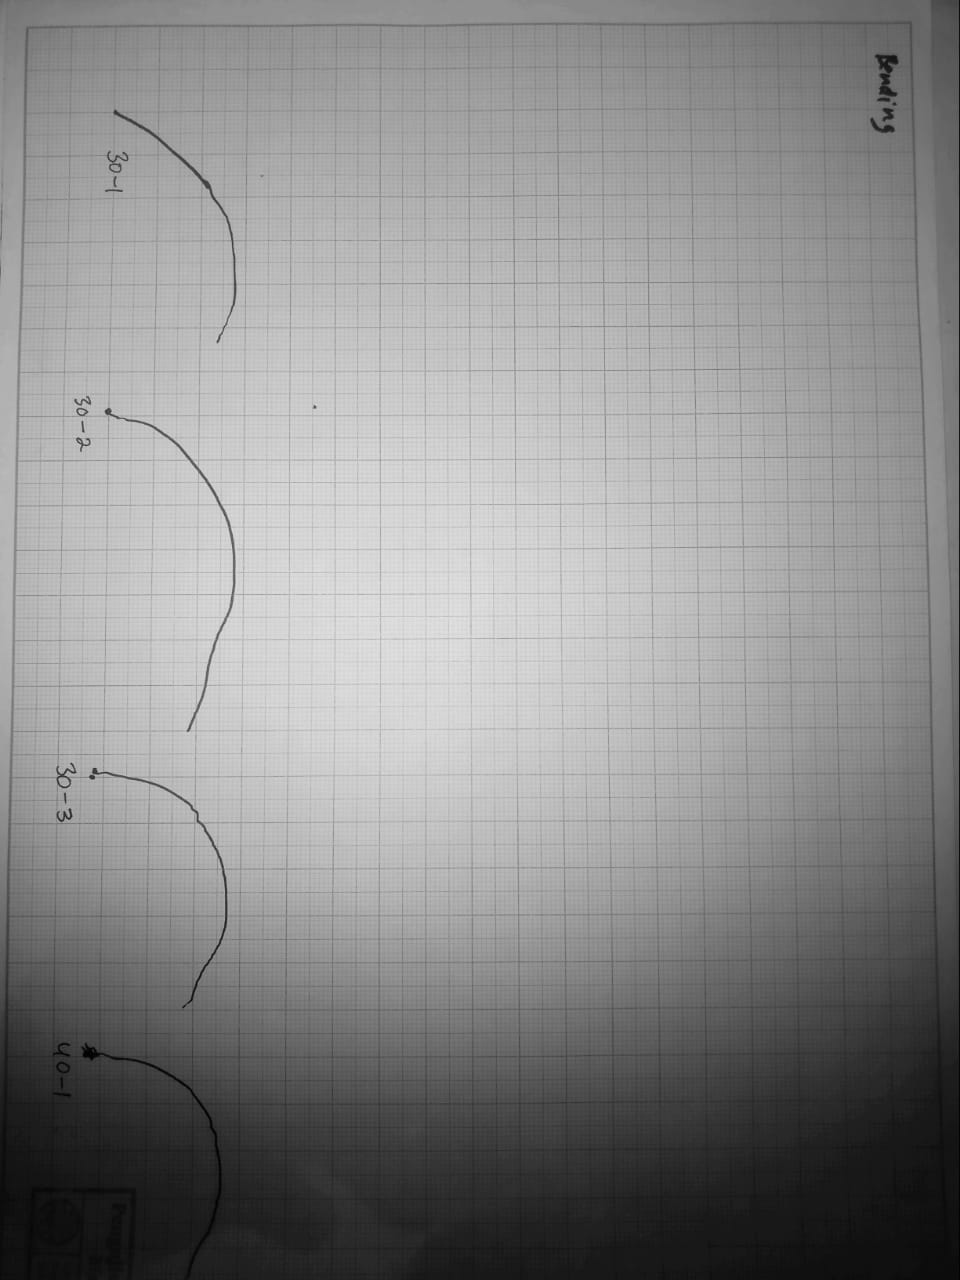 Bending
30-1
30-2
30-3
40-1